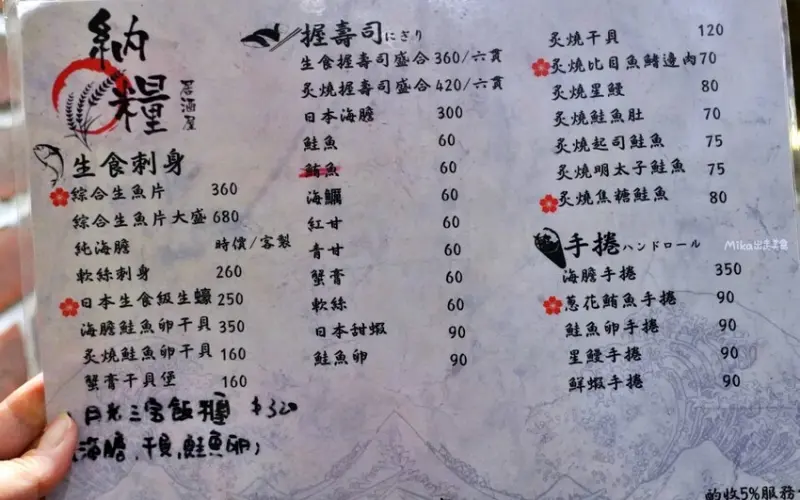 納糧
居酒屋
生食刺身
綜合生魚片 360
綜合生魚片大盛 680
純海膽 時價/客製
軟絲刺身 260
日本生食級生蠔 250
海膽鮭魚卵干貝 350
炙燒鮭魚卵干貝 160
蟹膏干貝堡 160
月光三宝飯糰 $320
海膽、干貝、鮭魚卵
握壽司にぎり
生食握壽司盛合 360/六貫
炙燒握壽司盛合 420/六貫
日本海膽 300
鮭魚 60
鮪魚 60
海鱺 60
紅甘 60
青甘 60
蟹膏 60
軟絲 60
日本甜蝦 90
鮭魚卵 90
炙燒干貝 120
炙燒比目魚鰭邊肉 70
炙燒星鰻 80
炙燒鮭魚肚 70
炙燒起司鮭魚 75
炙燒明太子鮭魚 75
炙燒焦糖鮭魚 80
手捲ハンドロール
海膽手捲 350
蔥花鮪魚手捲 90
鮭魚卵手捲 90
星鰻手捲 90
鮮蝦手捲 90
酌收5%服務
Mika出走美食